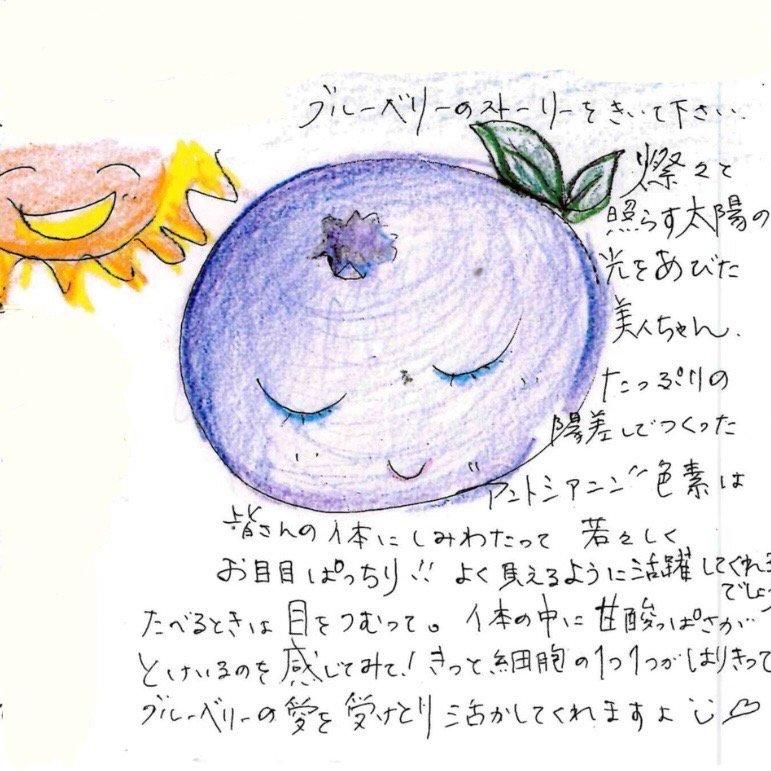 ブルーベリーのストーリーをきいて下さい.
燦々と
照らす太陽の
光をあびた
美人ちゃん.
たっぷりの
陽差しでつくった
"アントシアニン"色素は
皆さんの体にしみわたって 若々しく
お目目ぱっちり!! よく見えるように活躍してくれる
でしょう
たべるときは目をつむって。体の中に甘酸っぱさが
とけいるのを感じてみて!きっと細胞の1つ1つがはりきって
ブルーベリーの愛を受けとり活かしてくれますよ